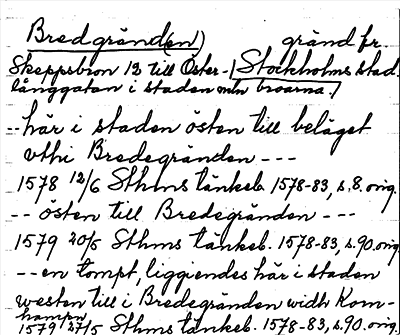 Bredgränd(en) gränd fr.
Skeppsbron 12 till Öster- / Stockholms stad.
långgatan i staden mln broarna. /
-- här i staden östen till beläget
vthi Bredegränden ---
1578 12/6 Sthms tänkeb. 1578-83, s.8. orig.
-- östen till Bredegränden ---
1579 20/5 Sthms tänkeb. 1578-83, s.90. orig.
-- en tompt, liggiendes här i staden
westen till i Bredegränden widh Kom-
hampn
1579 27/5 Sthms tänkeb. 1578-83, s.90. orig.